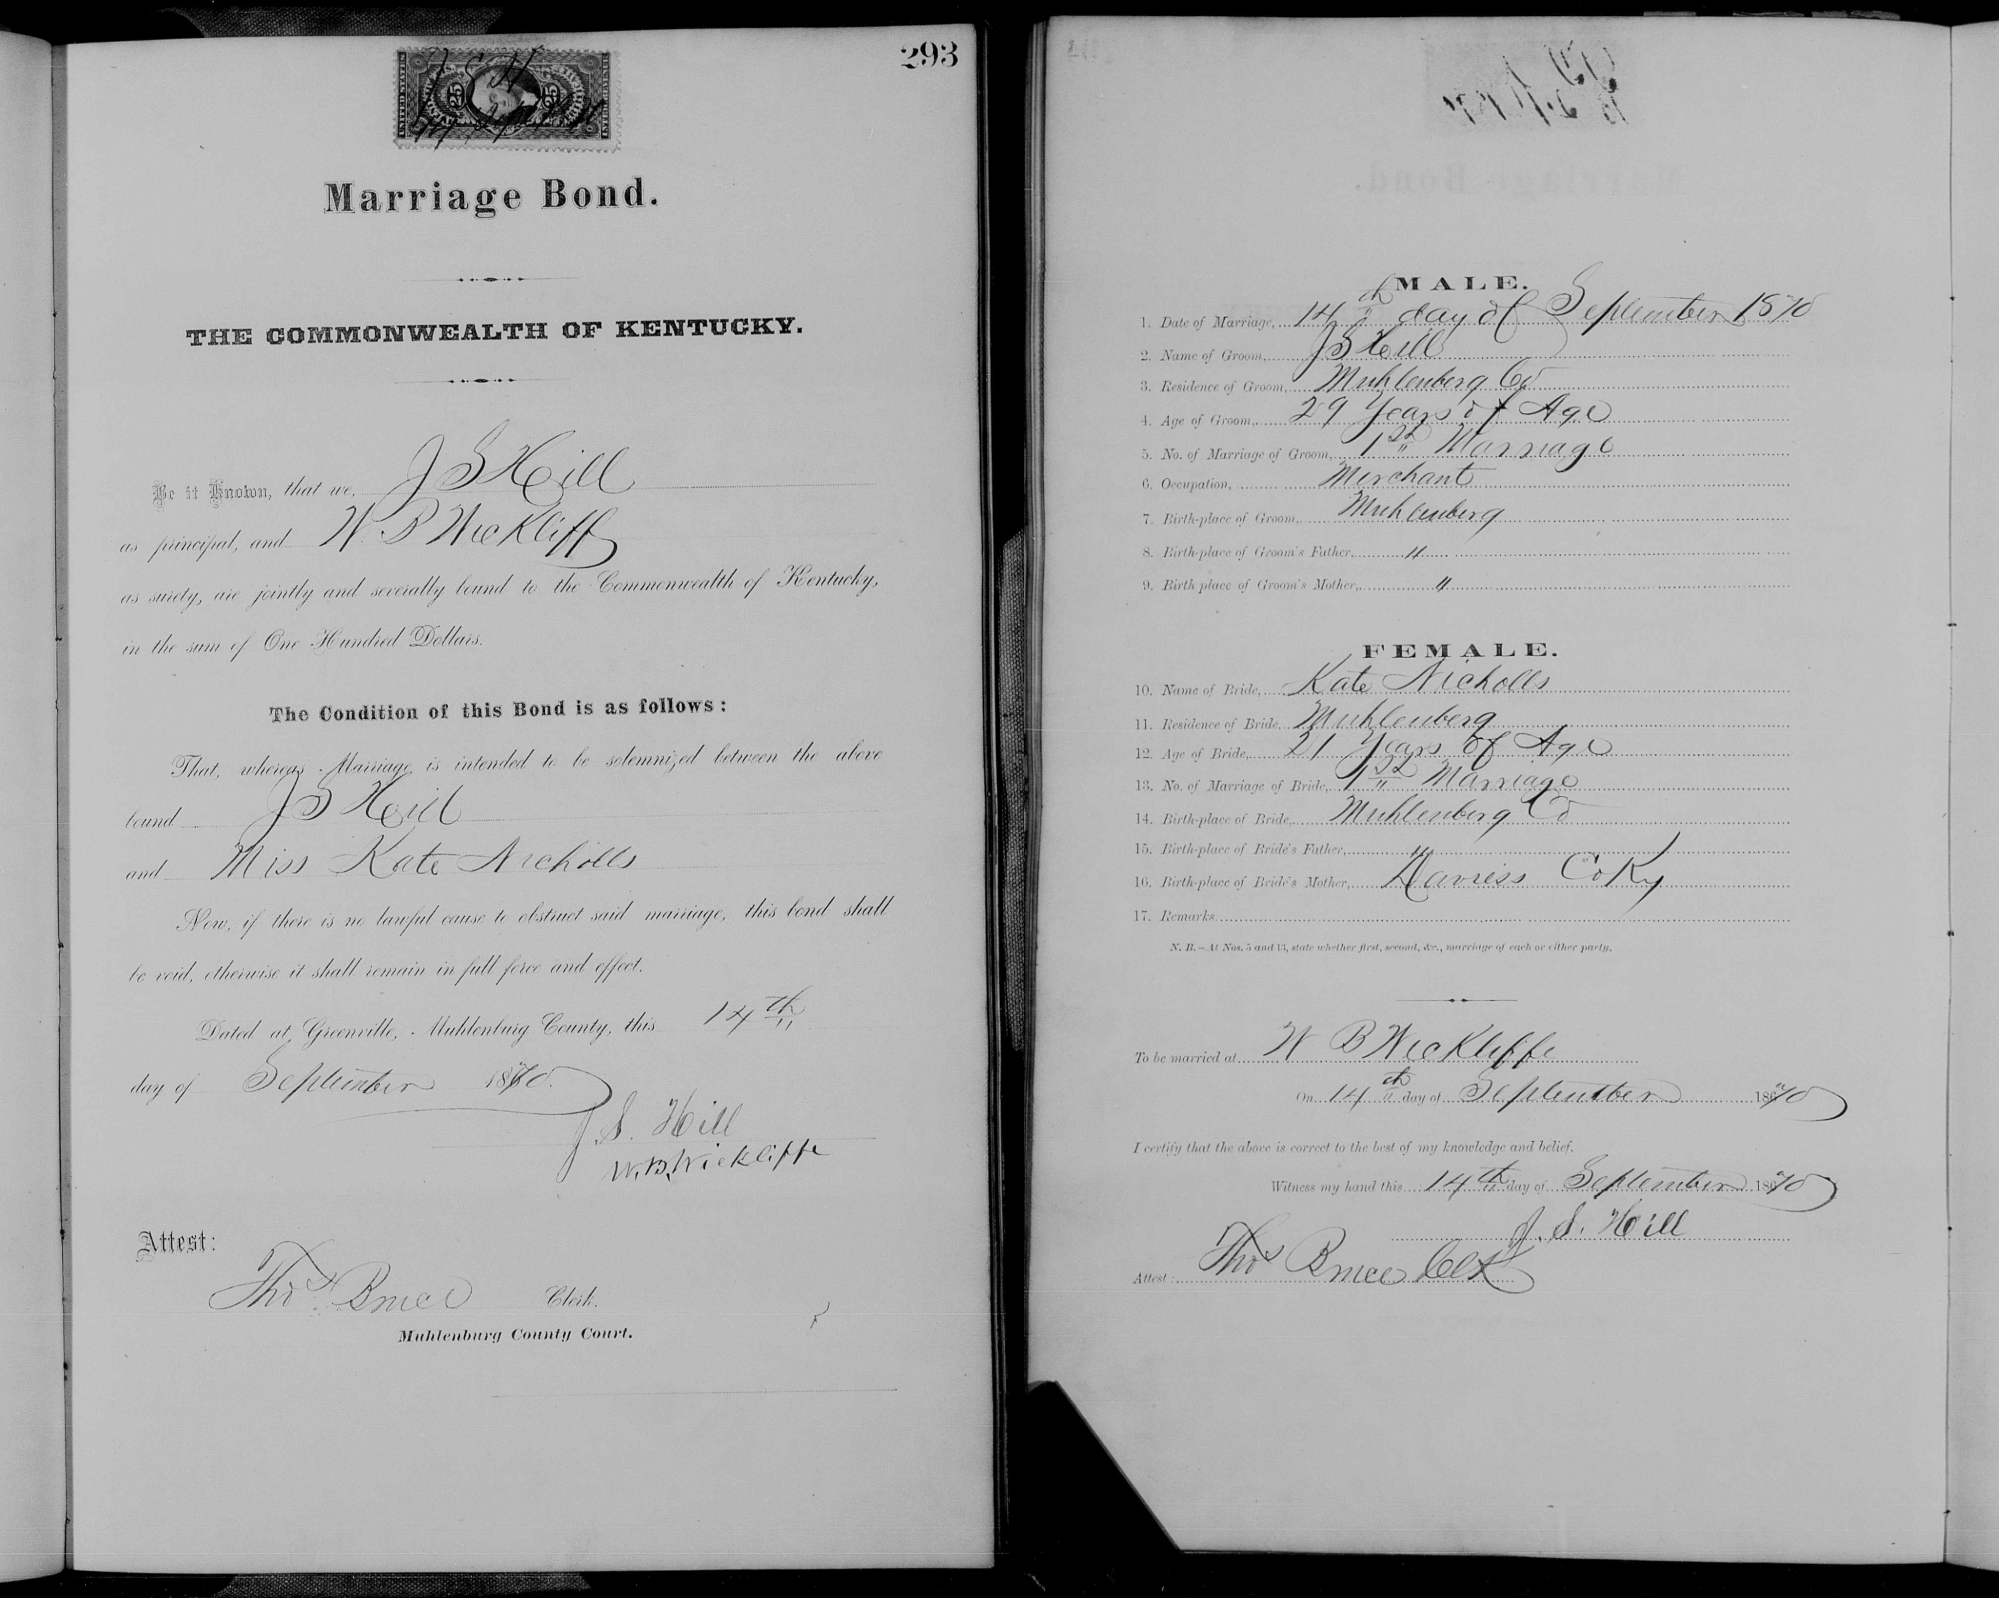 293
UNITED STATES
INTER. REVENUE
25
25
J S H
Marriage Bond.
THE COMMONWEALTH OF KENTUCKY.
Be it Known, that we, J S Hill
as principal, and W. B Wickliff
as surety, are jointly and severally bound to the Commonwealth of Kentucky,
in the sum of One Hundred Dollars.
The Condition of this Bond is as follows:
That, whereas Marriage is intended to be solemnized between the above
bound J S Hill
and Miss Kate Nicholls
Now, if there is no lawful cause to obstruct said marriage, this bond shall
be void, otherwise it shall remain in full force and effect.
Dated at Greenville, Muhlenburg County, this 14th
day of September 1870.
J. S. Hill
W. B. Wickliffe
Attest:
Thos. Bruce Clerk.
Muhlenburg County Court.
MALE.
1. Date of Marriage, 14th day of September 1870
2. Name of Groom, J S Hill
3. Residence of Groom, Muhlenberg Co
4. Age of Groom, 29 Years of Age
5. No. of Marriage of Groom, 1st Marriage
6. Occupation, Merchant
7. Birth-place of Groom, Muhlenberg
8. Birth-place of Groom's Father, "
9. Birth place of Groom's Mother, "
FEMALE.
10. Name of Bride, Kate Nicholls
11. Residence of Bride, Muhlenberg
12. Age of Bride, 21 Years of Age
13. No. of Marriage of Bride, 1st Marriage
14. Birth-place of Bride, Muhlenberg Co
15. Birth-place of Bride's Father, "
16. Birth-place of Bride's Mother, Daviess Co Ky
17. Remarks
N. B.—At Nos. 5 and 13, state whether first, second, &c., marriage of each or either party.
To be married at W B Wickliffe
On 14th day of September 1870
I certify that the above is correct to the best of my knowledge and belief.
Witness my hand this 14th day of September 1870
J. S. Hill
Attest: Thos Bruce Clk